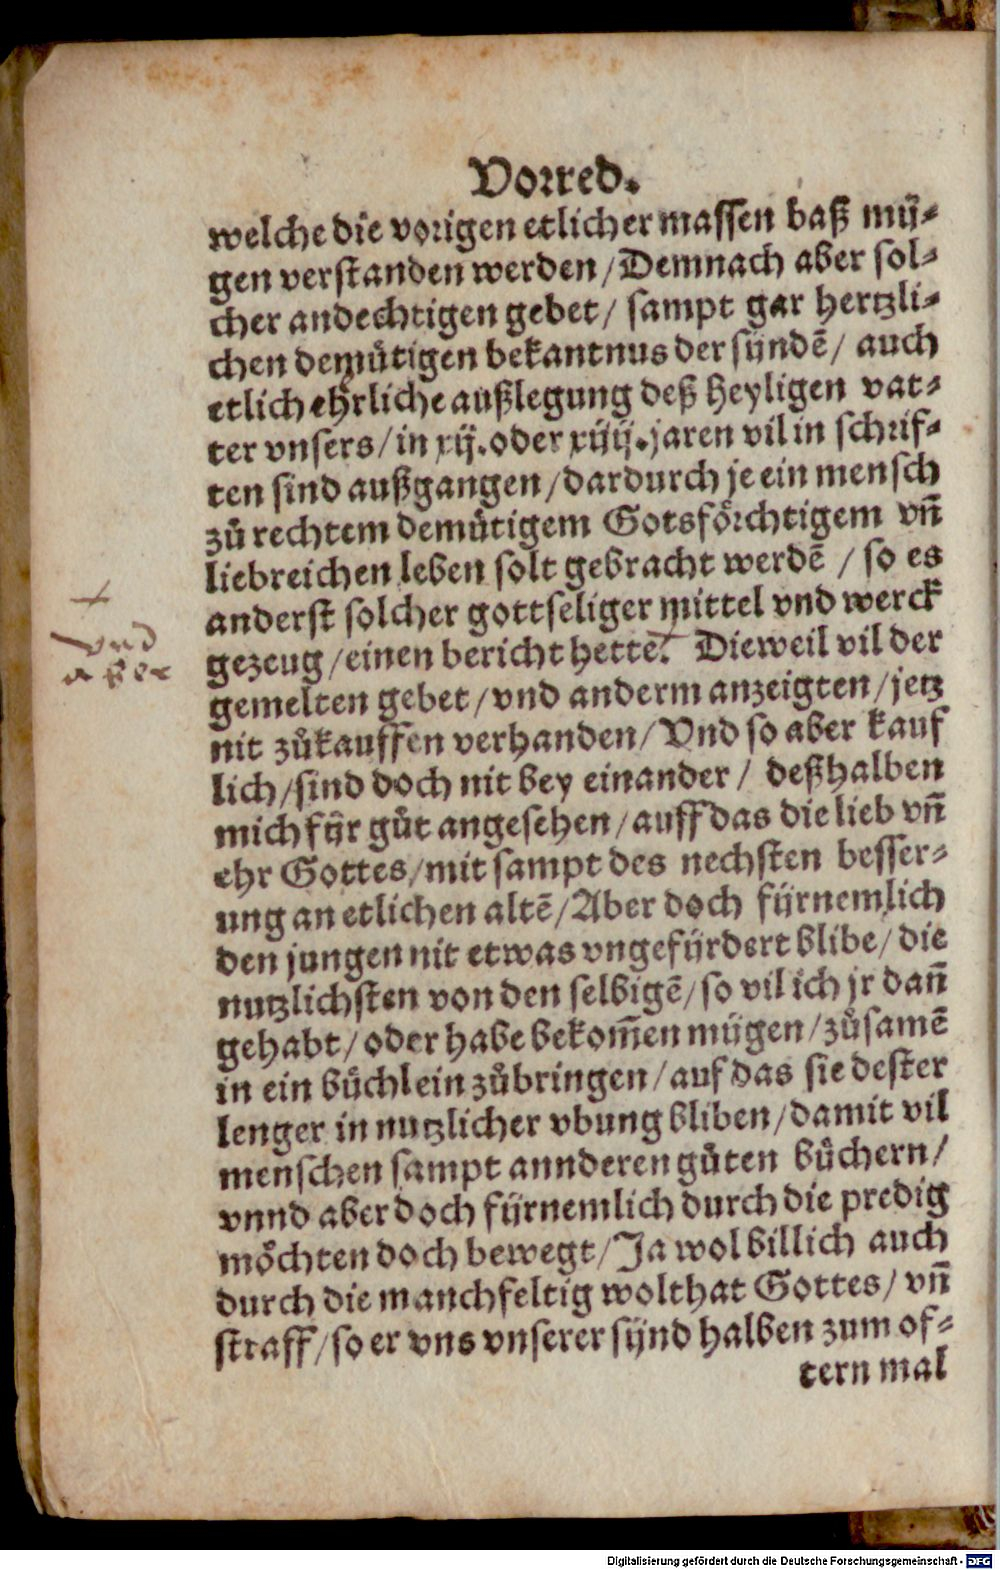 Vorred.
welche die vorigen etlicher massen baß mü-
gen verstanden werden / Demnach aber sol-
cher andechtigen gebet / sampt gar hertzli-
chen demütigen bekantnus der sündē / auch
etlich ehrliche außlegung deß heyligen vat-
ter vnsers / in xij. oder xiiij. jaren vil in schrif-
ten sind außgangen / dardurch je ein mensch
zů rechtem demütigem Gotsförchtigem vñ
liebreichen leben solt gebracht werdē / so es
anderst solcher gottseliger mittel vnd werck
gezeug / einen bericht hettē. Dieweil vil der
gemelten gebet / vnd anderm anzeigten / jetz
nit zůkauffen verhanden / Vnd so aber kauf
lich / sind doch nit bey einander / deßhalben
mich für gůt angesehen / auff das die lieb vñ
ehr Gottes / mit sampt des nechsten besser-
ung an etlichen altē / Aber doch fürnemlich
den jungen nit etwas vngefürdert blibe / die
nutzlichsten von den selbigē / so vil ich jr dañ
gehabt / oder habe bekom̄en mügen / zůsamē
in ein büchlein zůbringen / auf das sie dester
lenger in nutzlicher vbung bliben / damit vil
menschen sampt annderen gůten büchern /
vnnd aber doch fürnemlich durch die predig
möchten doch bewegt / Ja wol billich auch
durch die manchfeltig wolthat Gottes / vñ
straff / so er vns vnserer sünd halben zum of-
tern mal
+
vnd
aber
Digitalisierung gefördert durch die Deutsche Forschungsgemeinschaft - DFG